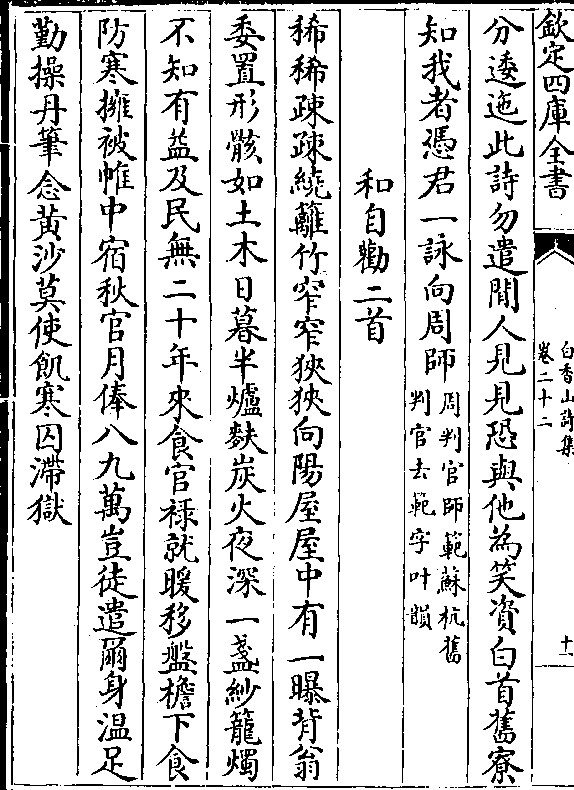 欽定四庫全書
白香山詩集
卷二十二
十一
分逶迤此詩勿遣閒人見見恐與他為笑資白首舊寮
知我者憑君一詠向周師周判官師範蘇杭舊
判官去範字叶韻
和自勸二首
稀稀疎疎繞籬竹窄窄狹狹向陽屋屋中有一曝背翁
委置形骸如土木日暮半爐麩炭火夜深一盞紗籠燭
不知有益及民無二十年來食官禄就暖移盤檐下食
防寒擁被帷中宿秋官月俸八九萬豈徒遣爾身温足
勤操丹筆念黃沙莫使飢寒囚滯獄